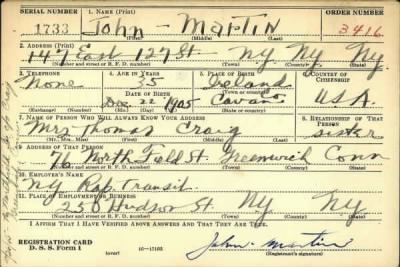 SERIAL NUMBER 1. NAME (Print) ORDER NUMBER
1733 John - Martin 3416
(First) (Middle) (Last)
2. ADDRESS (Print)
147 East 127 St. NY NY NY
(Number and street or R. F. D. number) (Town) (County) (State)
3. TELEPHONE 4. AGE IN YEARS 5. PLACE OF BIRTH 6. COUNTRY OF CITIZENSHIP
None 35 Ireland
DATE OF BIRTH
Dec. 22 1905 Cavan USA
(Exchange) (Number) (Mo.) (Day) (Yr.) (State or country)
7. NAME OF PERSON WHO WILL ALWAYS KNOW YOUR ADDRESS 8. RELATIONSHIP OF THAT PERSON
Mrs Thomas Craig sister
(Mr., Mrs., Miss) (First) (Middle) (Last)
9. ADDRESS OF THAT PERSON
76 North Field St. Greenwich Conn
(Number and street or R. F. D. number) (Town) (County) (State)
10. EMPLOYER'S NAME
NY Rap. Transit
11. PLACE OF EMPLOYMENT OR BUSINESS
250 Hudson St NY NY
(Number and street or R. F. D. number) (Town) (County) (State)
I AFFIRM THAT I HAVE VERIFIED ABOVE ANSWERS AND THAT THEY ARE TRUE.
REGISTRATION CARD
D. S. S. Form 1 (over) John Martin
(Registrant's signature)